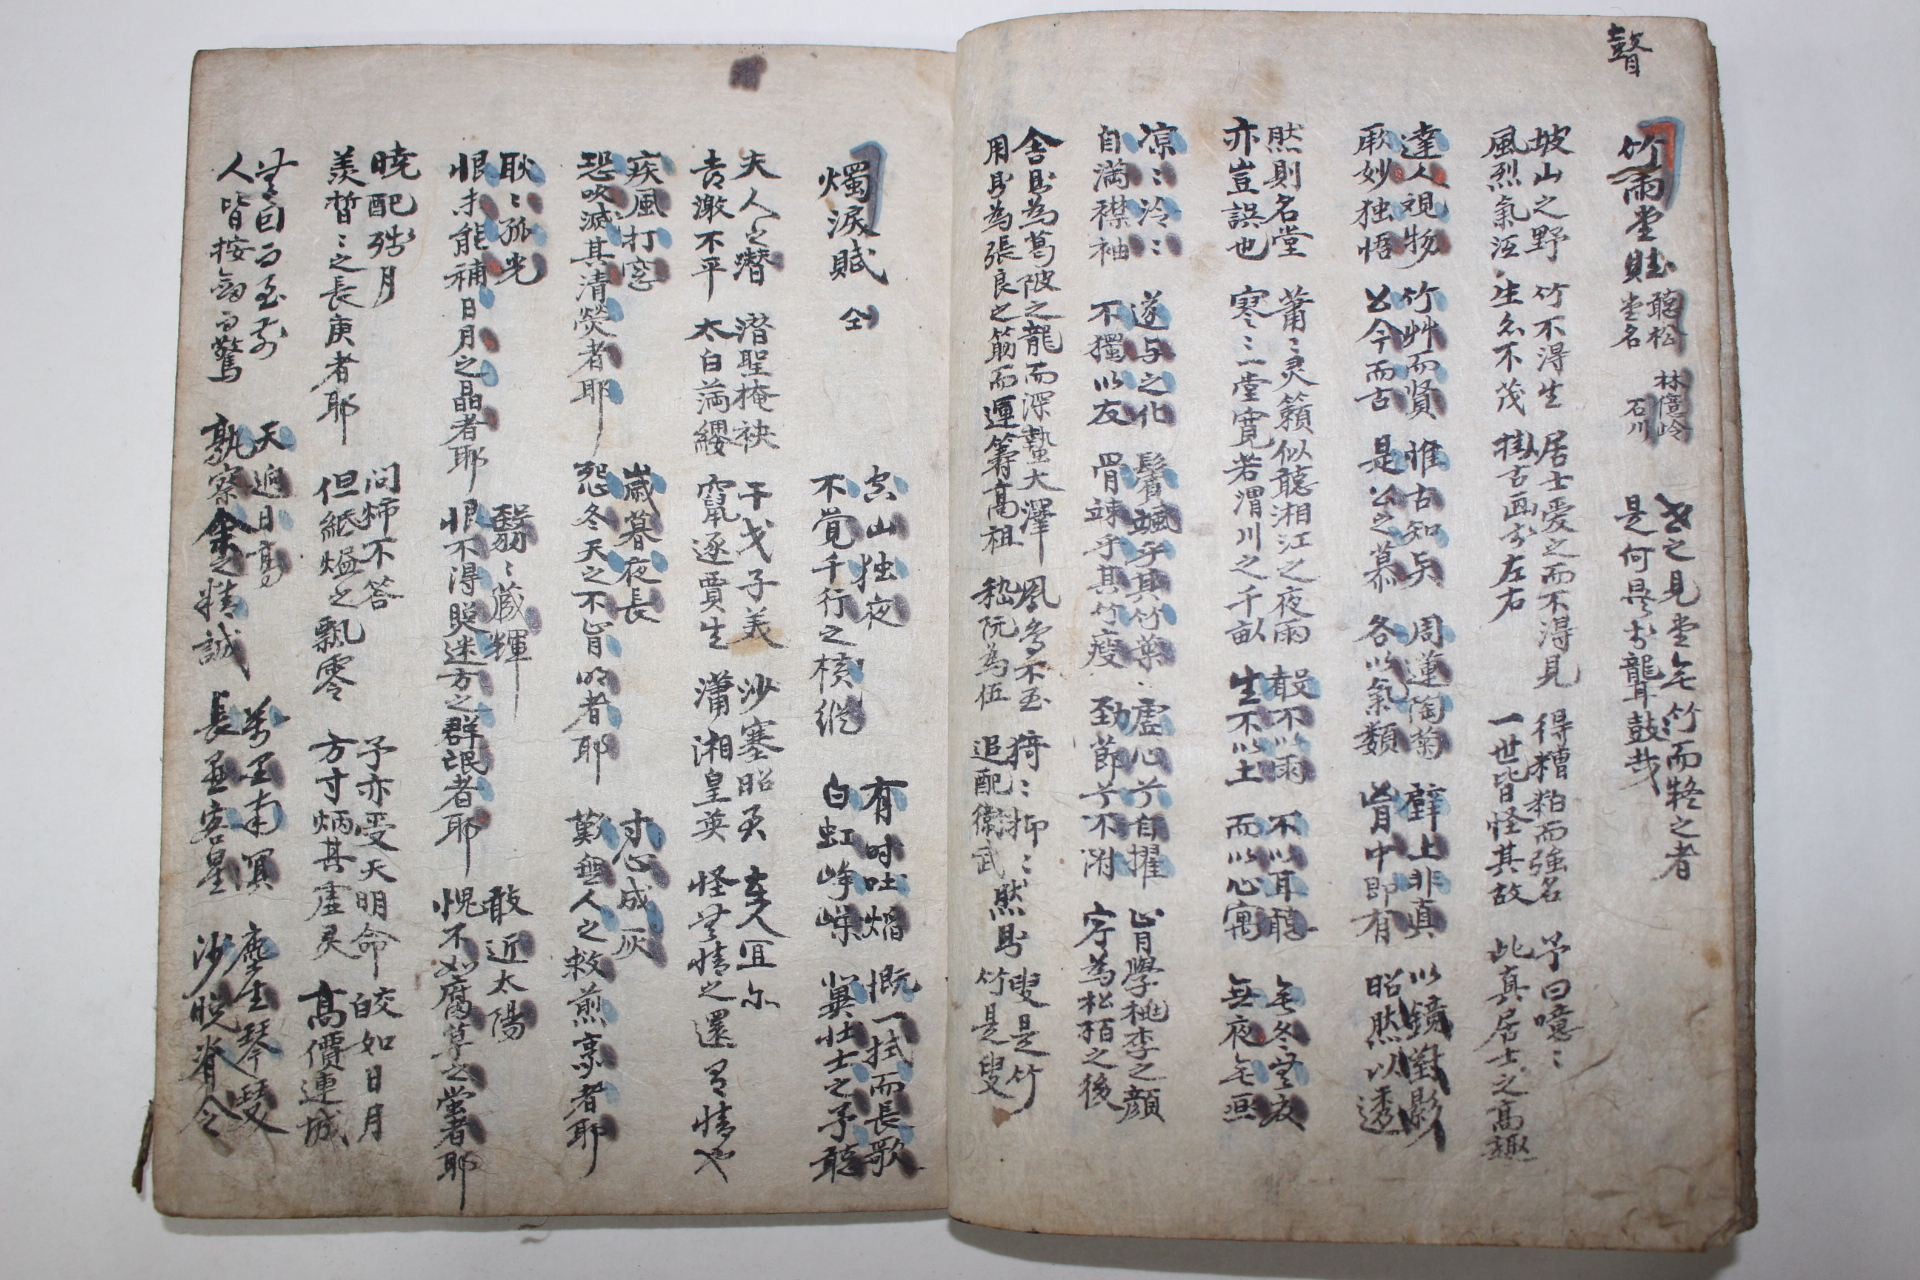 瞽
竹雨堂賦 聽松堂名 林億岭 石川
世之見堂無竹而疑之者 是何異於聾鼓哉
坡山之野 風烈氣冱 竹不得生 生亦不茂 居士愛之而不得見 掛古画於左右 得糟粕而強名 一世皆怪其故 予曰噫噫 此真居士之高趣
達人視物 厥妙独悟 竹艸而賢 公今而古 惟古知与 是公之慕 周蓮陶菊 各以氣類 壁上非真 胷中即有 以鏡對影 昭然以透
然則名堂 亦豈誤也 蕭蕭灵籟似聽湘江之夜雨 寒寒一堂寛若渭川之千畝 聲不以雨 生不以土 不以耳聽 而以心寓 無冬無夜 無夜無
凉凉冷冷 自満襟袖 遂与之化 不獨以友 鬢颯乎其竹葉 骨竦乎其竹瘦 虚心兮自擢 勁節兮不附 肯學桃李之顔 字為松栢之後
舍則為葛陂之龍而深蟄大澤 用則為張良之筯而運籌高祖 鳳鳥不至 嵇阮為伍 猗猗抑抑 追配衛武 然則 叟是竹 竹是叟
燭淚賦 仝
空山独夜 不覚千行之横縱 有时吐焰 白虹崢嶸 慨一拭而長歌 冀壮士之予聽
夫人之潜 古澈不平 潜聖掩袂 太白満纓 干戈子美 竄逐賈生 沙塞昭君 瀟湘皇英 夫人宜尔 怪無情之還有情也
疾風打窓 恐吹滅其清熒者耶 歳暮夜長 怨冬天之不肯明者耶 寸心成灰 歎無人之救煎烹者耶
耿耿孤光 恨未能補日月之晶者耶 翳翳藏輝 恨不得照迷方之群氓者耶 敢近太陽 愧不如腐草之螢者耶
曉配残月 羨晳晳之長庚者耶 问燭不答 但紙燼之飄零 予亦受天明命 方寸炳其虚灵 皎如日月 高價連城
無自而至前 人皆按劔而驚 天逈日高 孰察余之精誠 萬里南冥 長爲客星 塵生琴瑟 沙晩脊令